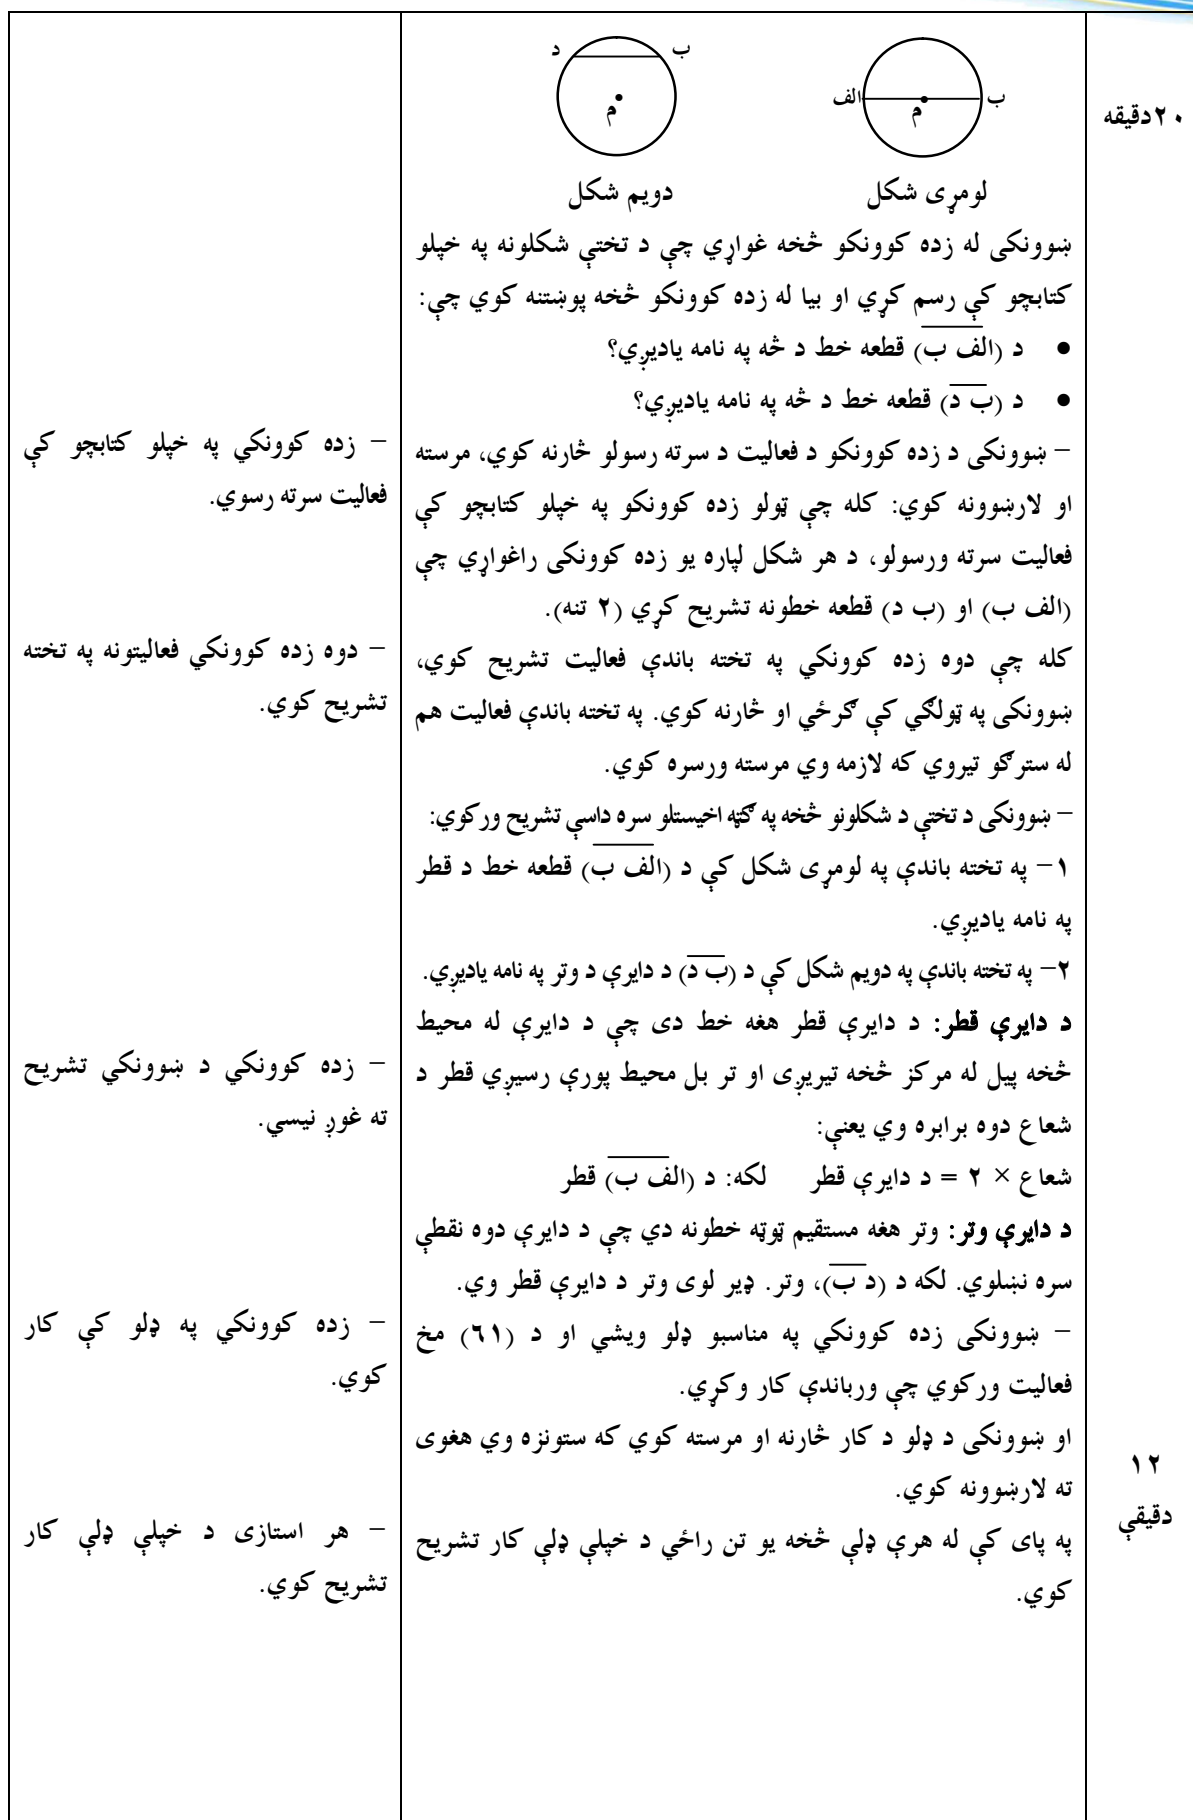 ۲۰ دقیقه
ب
الف
م
ب
د
م
لومړی شکل
دویم شکل
ښوونکی له زده کوونکو څخه غواړي چې د تختې شکلونه په خپلو
کتابچو کې رسم کړي او بیا له زده کوونکو څخه پوښتنه کوي چې:
● د (الف ب) قطعه خط د څه په نامه یادیږي؟
● د (ب د) قطعه خط د څه په نامه یادیږي؟
– ښوونکی د زده کوونکو د فعالیت د سرته رسولو څارنه کوي، مرسته
او لارښوونه کوي: کله چې ټولو زده کوونکو په خپلو کتابچو کې
فعالیت سرته ورسولو، د هر شکل لپاره یو زده کوونکی راغواړي چې
(الف ب) او (ب د) قطعه خطونه تشریح کړي (۲ تنه).
کله چې دوه زده کوونکي په تخته باندې فعالیت تشریح کوي،
ښوونکی په ټولګي کې ګرځي او څارنه کوي. په تخته باندې فعالیت هم
له سترګو تیروي که لازمه وي مرسته ورسره کوي.
– ښوونکی د تختې د شکلونو څخه په ګټه اخیستلو سره داسې تشریح ورکوي:
۱– په تخته باندې په لومړی شکل کې د (الف ب) قطعه خط د قطر
په نامه یادیږي.
۲– په تخته باندې په دویم شکل کې د (ب د) د دایرې د وتر په نامه یادیږي.
د دایرې قطر: د دایرې قطر هغه خط دی چې د دایرې له محیط
څخه پیل له مرکز څخه تیریږی او تر بل محیط پورې رسیږي قطر د
شعاع دوه برابره وي یعنې:
شعاع × ۲ = د دایرې قطر لکه: د (الف ب) قطر
د دایرې وتر: وتر هغه مستقیم ټوټه خطونه دي چې د دایرې دوه نقطې
سره نښلوي. لکه د (د ب)، وتر. ډیر لوی وتر د دایرې قطر وي.
– ښوونکی زده کوونکي په مناسبو ډلو ویشي او د (٦۱) مخ
فعالیت ورکوي چې ورباندې کار وکړي.
او ښوونکی د ډلو د کار څارنه او مرسته کوي که ستونزه وي هغوی
ته لارښوونه کوي.
په پای کې له هرې ډلې څخه یو تن راځي د خپلې ډلې کار تشریح
کوي.
۱۲
دقیقې
– زده کوونکي په خپلو کتابچو کې
فعالیت سرته رسوي.
– دوه زده کوونکي فعالیتونه په تخته
تشریح کوي.
– زده کوونکي د ښوونکي تشریح
ته غوږ نیسي.
– زده کوونکي په ډلو کې کار
کوي.
– هر استازی د خپلې ډلې کار
تشریح کوي.